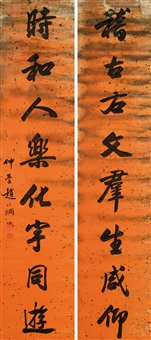 稽古右文羣生咸仰
時和人樂化宇同遊
仲瑩趙